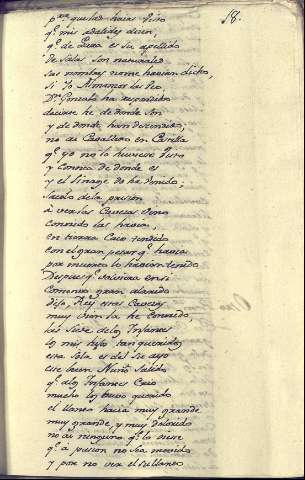 18.
q.e mis adalides dicen,
q.e de Lara es su apellido
de Salas son naturales
sus nombres no me havian dicho,
Si Yo Almanzor las veo
D.n Gonzalo ha respondido
deciros he de donde son
y de donde han descendido,
no ai Cavallero en Castilla
q.e yo no lo huviese visto
y conozca de donde es
y el linage do ha venido;
Sacolo de la prision
a ver las Cavezas vino
conocido las havia
en tierra Caio tendido
con el gran pesar q.e havia
por muerto lo havian tenido
Despues q.e bolviera en si
Comenzo gran alarido
dijo, Rey estas Cavezas
muy bien las he conocido,
las Siete de los Infantes
los mis hijos tan queridos
esta sola es del su ayo
ese buen Nuño Salido
q.e a los Infantes Crio
mucho los tuvo querido
el llanto hacia muy grande
muy grande, y muy dolorido
no ai ninguno q.e lo viese
q.e a pasion no sea movido
y por no ver el su llanto